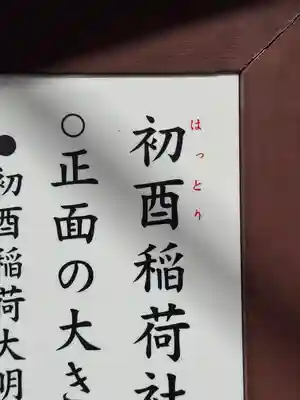 初酉稲荷社
はっとり
○正面の大き
●初酉稲荷大明